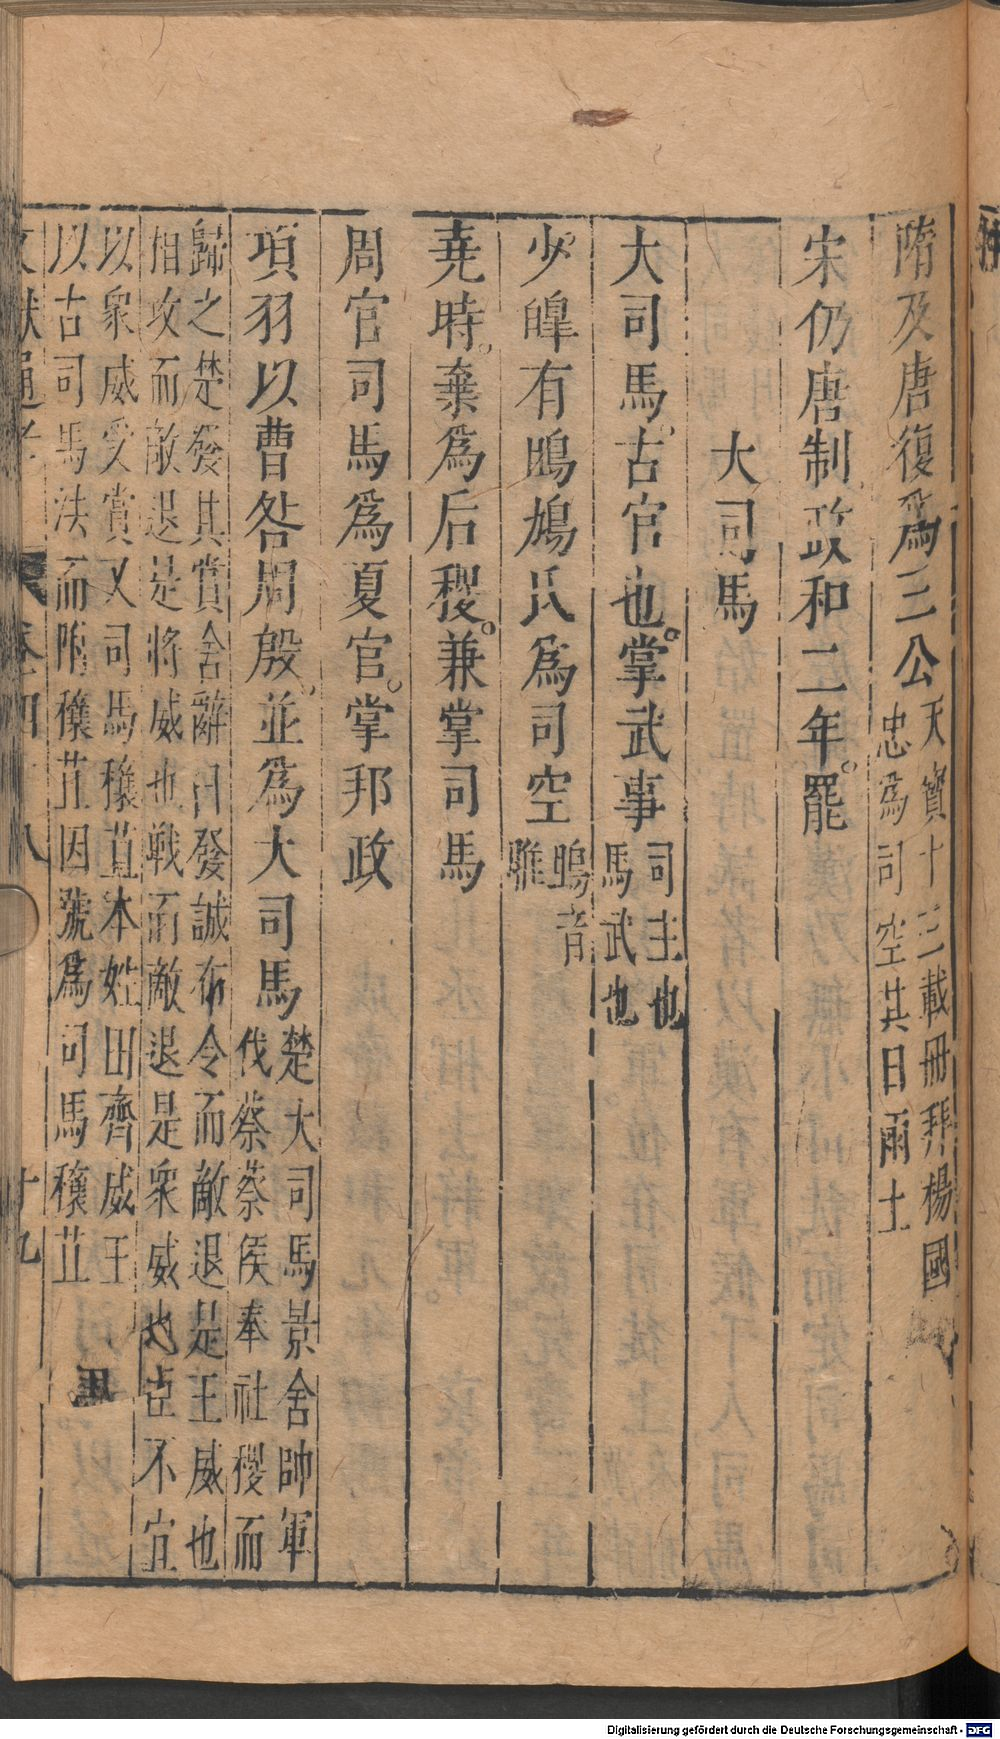 隋及唐復爲三公天寶十三載冊拜楊國
忠爲司空其日雨土
宋仍唐制政和二年罷
大司馬
大司馬古官也掌武事司主也
馬武也
少皥有鴡鳩氏爲司空鴡音
雎
堯時棄爲后稷兼掌司馬
周官司馬爲夏官掌邦政
項羽以曹咎周殷並爲大司馬楚大司馬景舍帥軍
伐蔡蔡侯奉社稷而
歸之楚發其賞舍辭曰發誠布令而敵退是王威也
相攻而敵退是將威也戰而敵退是衆威也臣不宜
以衆威受賞又司馬穰苴本姓田齊威王
以古司馬法而附穰苴因號爲司馬穰苴
十九
Digitalisierung gefördert durch die Deutsche Forschungsgemeinschaft - DFG